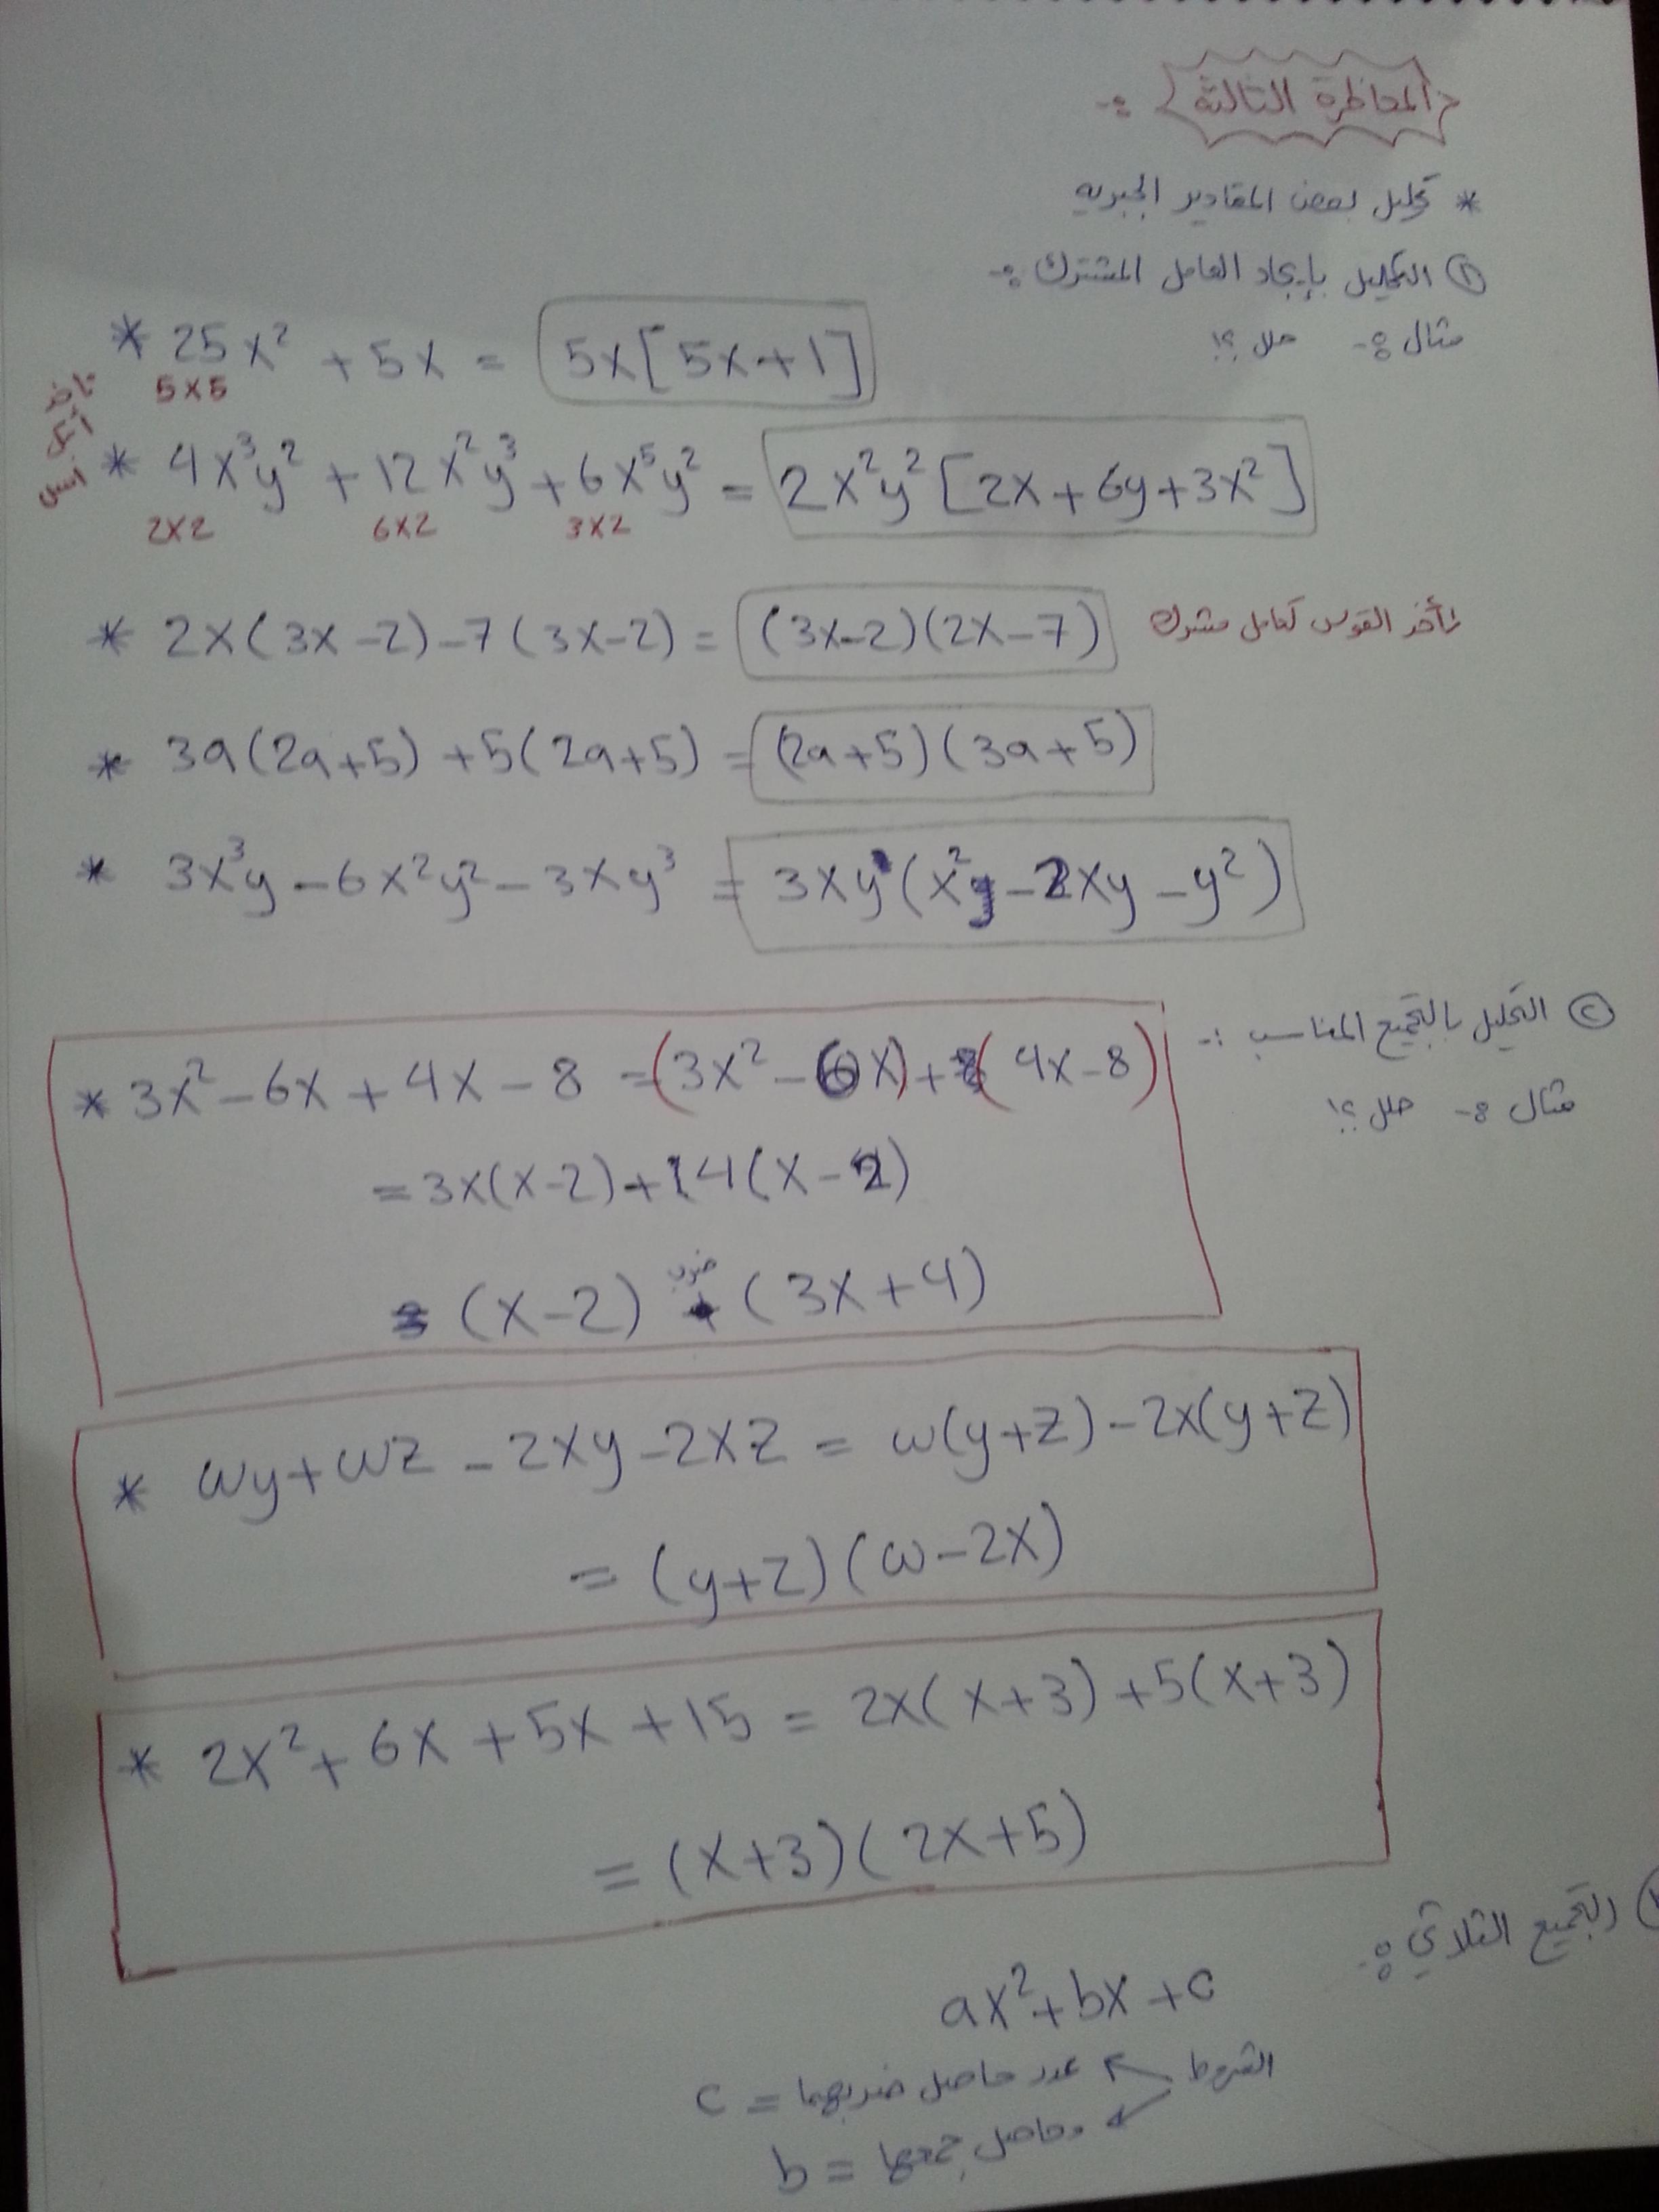 المحاظرة الثالثة :-
* تحليل بعض المقادير الجبريه
① التحليل بإيجاد العامل المشترك :-
مثال :- حلل ؟!
* 25x² + 5x = 5x[5x+1]
5x5
ناخذ
أقل
اس
* 4x³y² + 12x²y³ + 6x⁵y² = 2x²y²[2x+6y+3x²]
2x2 6x2 3x2
* 2x(3x-2)-7(3x-2) = (3x-2)(2x-7) نأخذ القوس كعامل مشترك
* 3a(2a+5) +5(2a+5) = (2a+5)(3a+5)
* 3x³y - 6x²y² - 3xy³ = 3xy(x² - 2xy - y²)
② التحليل بالتجميع المناسب :-
مثال :- حلل ؟!
* 3x² - 6x + 4x - 8 = (3x² - 6x) + (4x-8)
= 3x(x-2) + 4(x-2)
= (x-2) ضرب • (3x+4)
* wy+wz - 2xy - 2xz = w(y+z) - 2x(y+z)
= (y+z)(w-2x)
* 2x² + 6x + 5x + 15 = 2x(x+3) + 5(x+3)
= (x+3)(2x+5)
التجميع الثلاثي :-
ax²+bx+c
الشروط ٢ عدد حاصل ضربهما = c
وحاصل جمعها = b